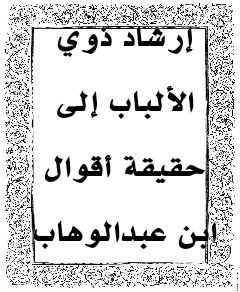 إرشاد ذوي
الألباب إلى
حقيقة أقوال
ابن عبدالوهاب